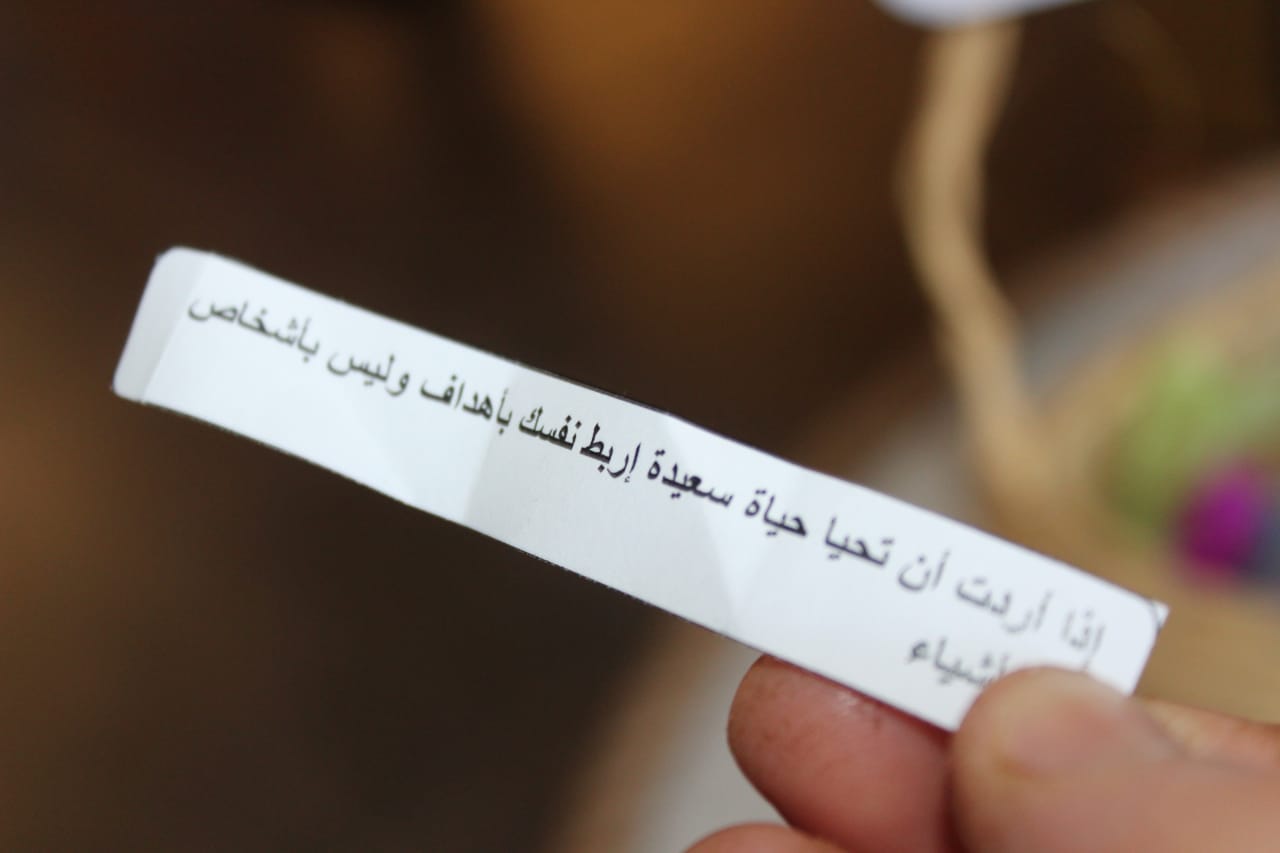 إذا أردت أن تحيا حياة سعيدة إربط نفسك بأهداف وليس بأشخاص
أشياء